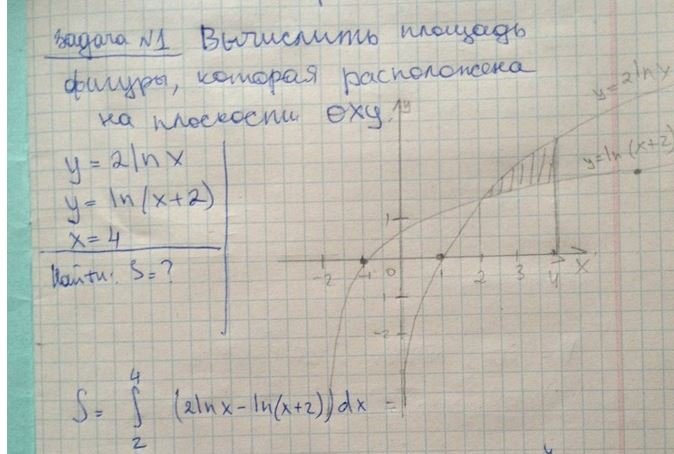 Задача №1 Вычислить площадь
фигуры, которая расположена
на плоскости OXY.
y = 2lnx
y = ln(x+2)
x = 4
Найти: S = ?
y
y = 2lnx
y = ln(x+2)
1
-2 -1 0 1 2 3 4 X
-1
-2
S = ∫₂⁴ (2lnx - ln(x+2))dx =